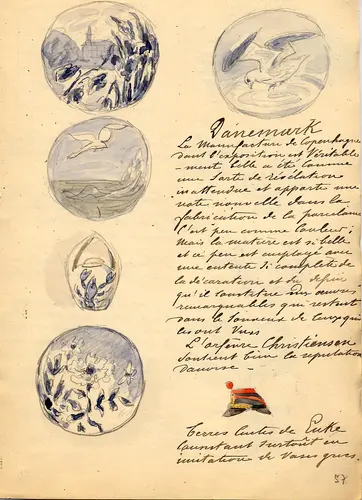 Danemark
La Manufacture de Copenhague
dont l'exposition est véritable
-ment belle a été comme
une sorte de révélation
inattendue et apporte une
note nouvelle dans la
fabrication de la porcelaine
C'est peu comme couleur;
Mais la matière est si belle
et ce peu est employé avec
une entente si complète de
la décoration et du dessin
qu'il constitue des œuvres
remarquables qui restent
dans le souvenir de ceux qui
les ont vues
L'orfèvre Christiensen
soutient bien la réputation
danoise -
Terres cuites de
Consistant surtout en
imitation de vases grecs.
57